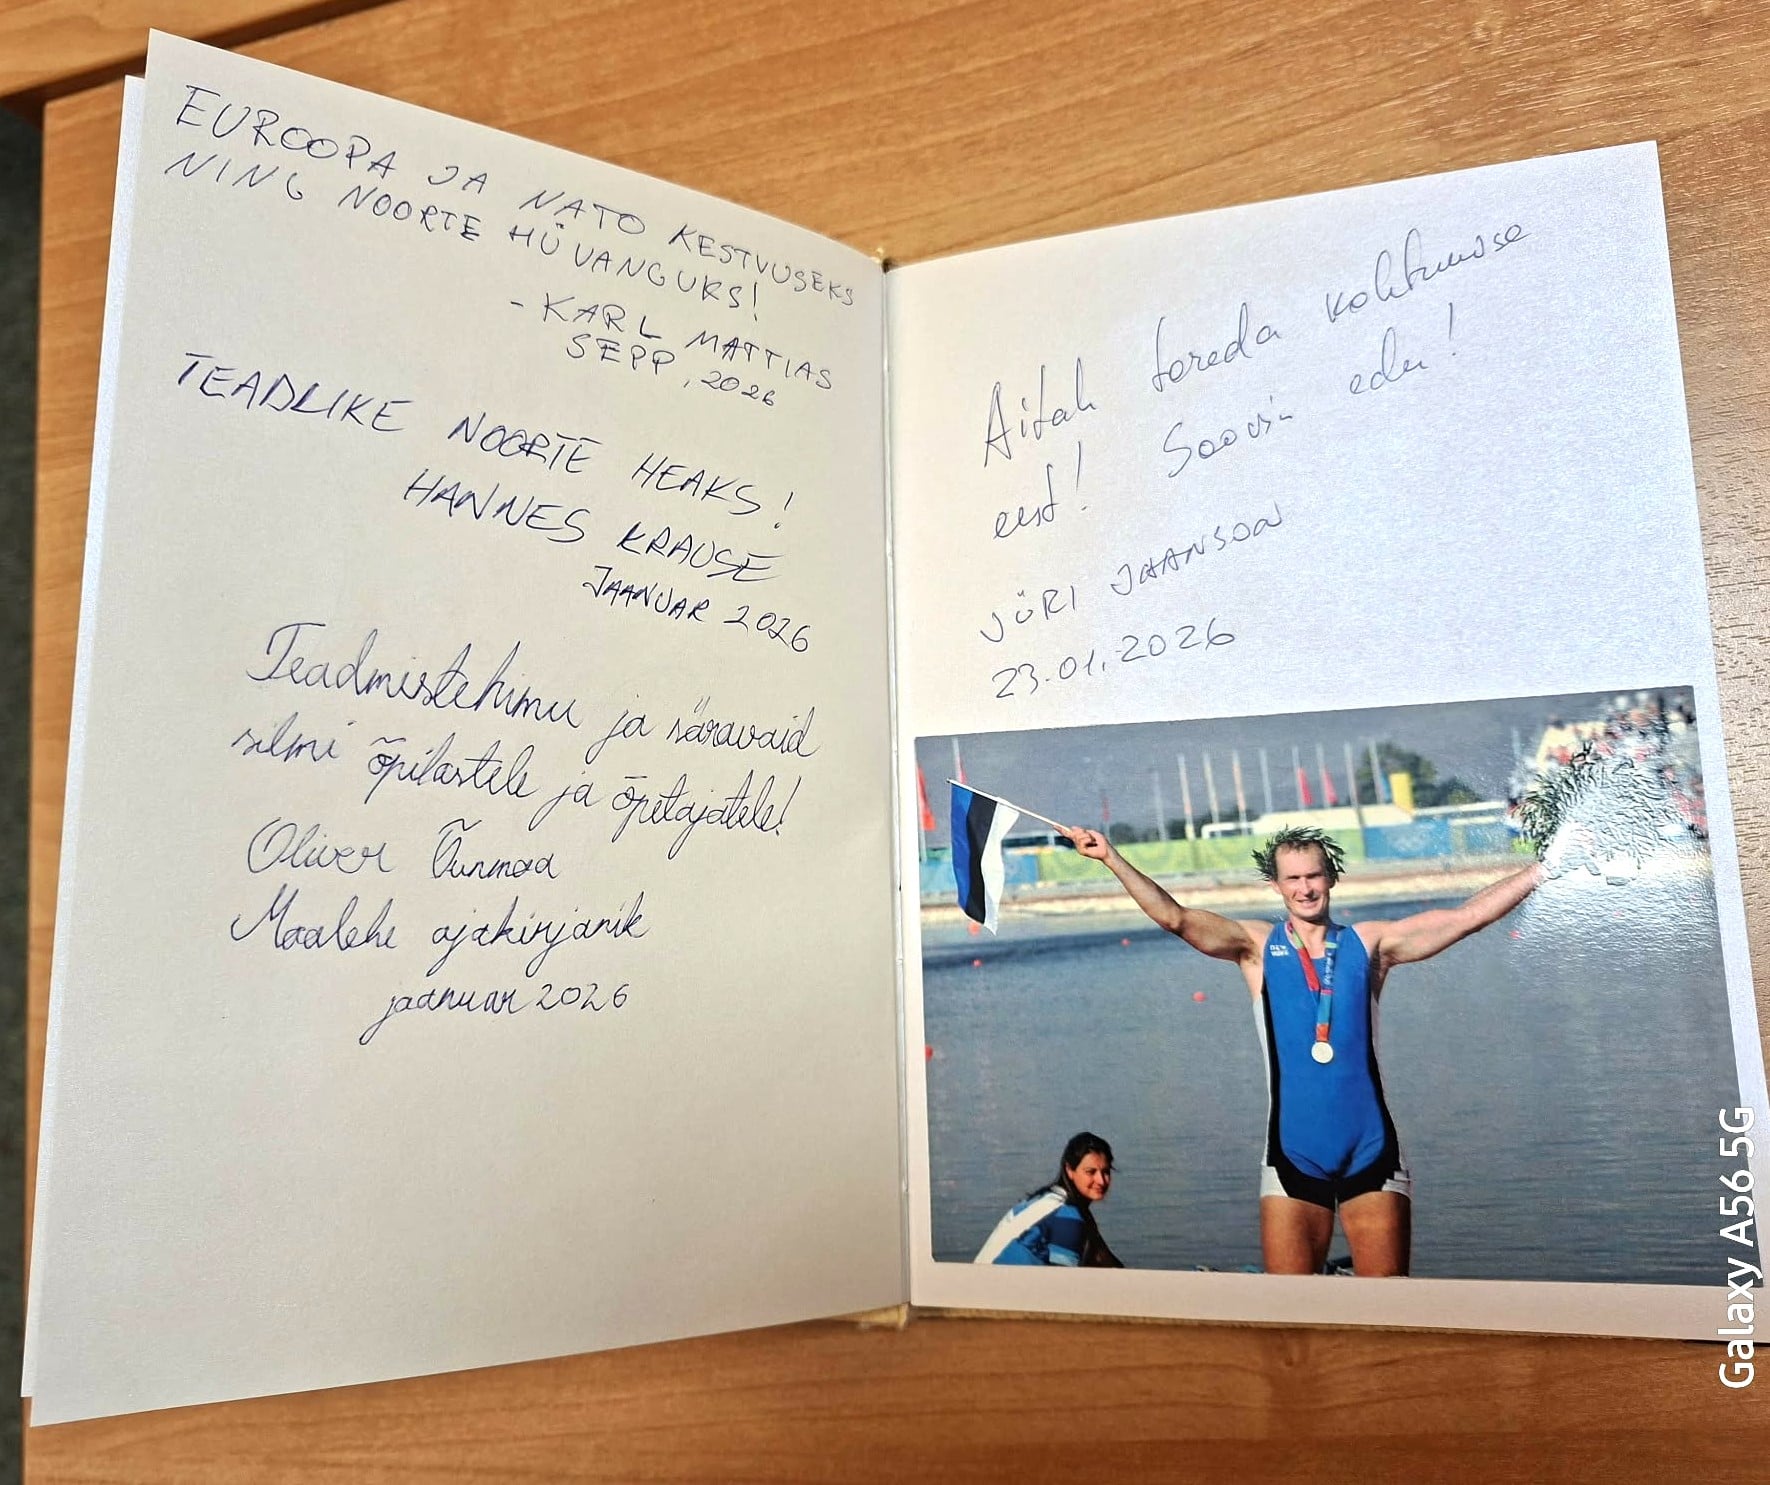 EUROOPA JA NATO KESTVUSEKS
NING NOORTE HÜVANGUKS!
- KARL MATTIAS
SEPP, 2026
TEADLIKE NOORTE HEAKS!
HANNES KRAUSE
JAANUAR 2026
Teadmistehimu ja säravaid
silmi õpilastele ja õpetajatele!
Oliver Õunmaa
Maalehe ajakirjanik
jaanuar 2026
Aitäh toreda kohtumise
eest! Soovin edu!
JÜRI JAANSON
23.01.2026
Galaxy A56 5G